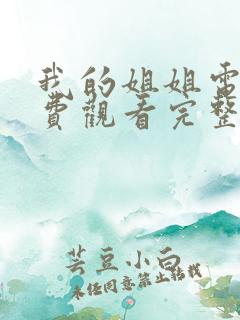 我的姐姐電
費觀看完整
芸豆小白
未经同意禁止转载